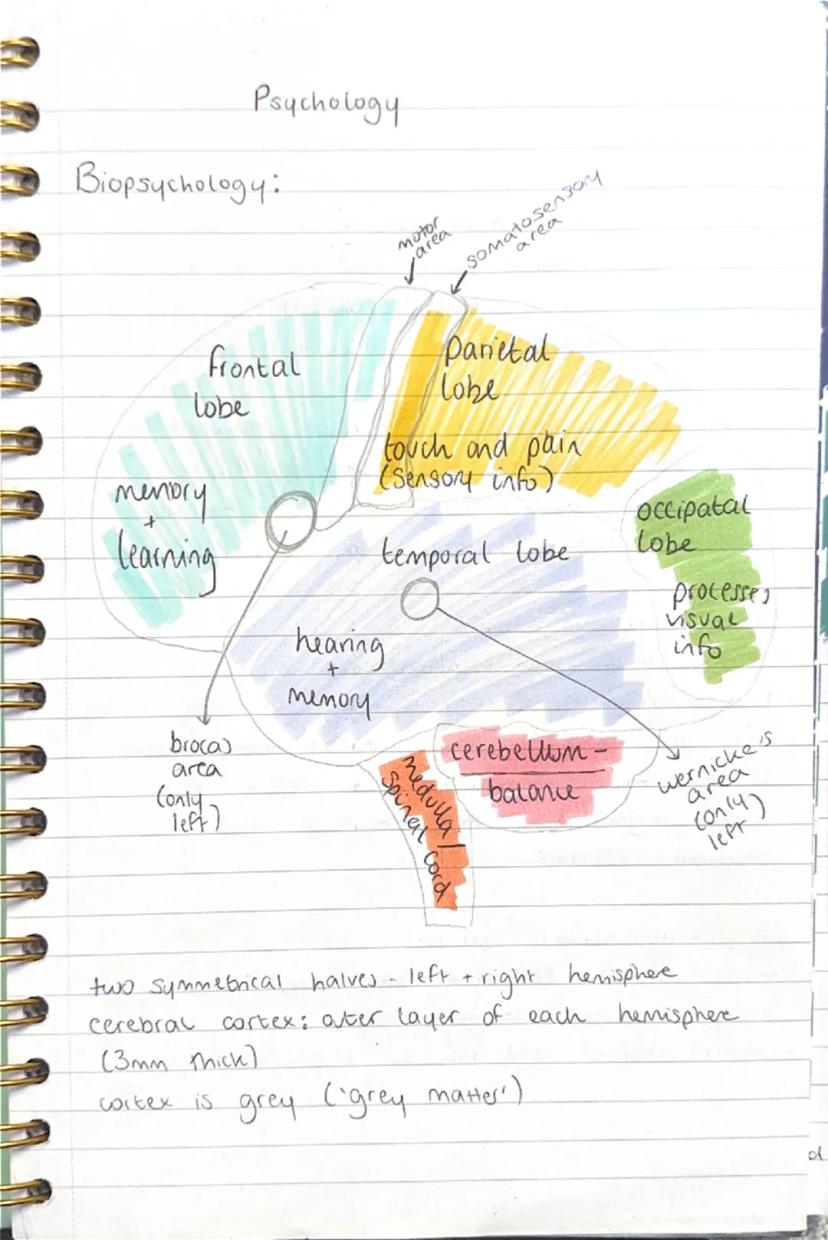 Psychology
Biopsychology:
motor
area
somatosensory
area
frontal
lobe
parietal
lobe
touch and pain
(sensory info)
memory
+
learning
occipatal
lobe
processes
visual
info
temporal lobe
hearing
+
memory
brocas
area
(only
left)
cerebellum –
balance
wernicke's
area
(only
left)
medulla/
spinal cord
two symmetrical halves - left + right hemisphere
cerebral cortex: outer layer of each hemisphere
(3mm thick)
cortex is grey ('grey matter')
d